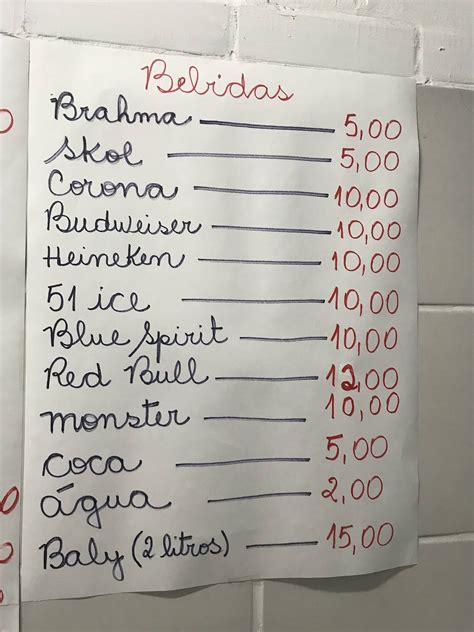 Bebidas
Brahma 5,00
Skol 5,00
Corona 10,00
Budweiser 10,00
Heineken 10,00
51 ice 10,00
Blue Spirit 10,00
Red Bull 12,00
monster 10,00
coca 5,00
água 2,00
Baly (2 litros) 15,00